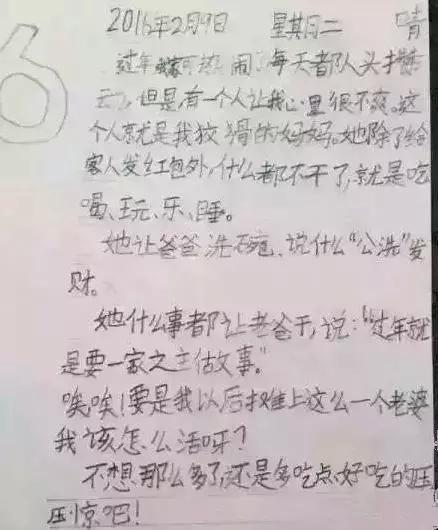 2016年2月9日 星期二 晴
过年我家可热闹了每天都人头攒
云,但是,有一个人让我心里很不爽。这
个人就是我狡猾的妈妈。她除了给
客人发红包外,什么都不干了,就是吃
喝、玩、乐、睡。
她让爸爸洗碗、说什么“公洗”发
财。
她什么事都让老爸干,说:“过年就
是要一家之主做事。”
唉唉!要是我以后摊上这么一个老婆
我该怎么活呀?
不想那么多了,还是多吃点好吃的压
压惊吧!